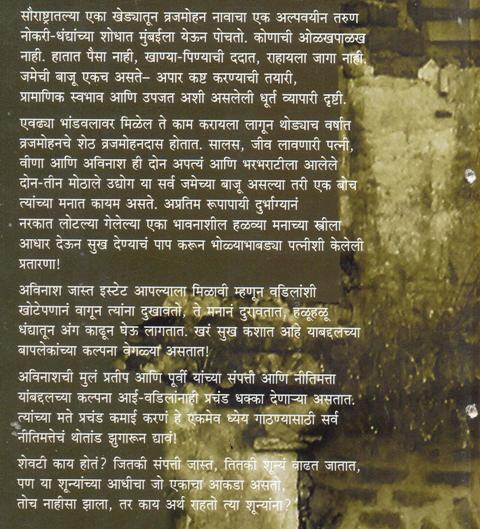 सौराष्ट्रातल्या एका खेड्यातून व्रजमोहन नावाचा एक अल्पवयीन तरुण
नोकरी-धंद्यांच्या शोधात मुंबईला येऊन पोचतो. कोणाची ओळखपाळख
नाही. हातात पैसा नाही, खाण्या-पिण्याची ददात, राहायला जागा नाही.
जमेची बाजू एकच असते– अपार कष्ट करण्याची तयारी,
प्रामाणिक स्वभाव आणि उपजत अशी असलेली धूर्त व्यापारी दृष्टी.
एवढ्या भांडवलावर मिळेल ते काम करायला लागून थोड्याच वर्षात
व्रजमोहनचे शेठ व्रजमोहनदास होतात. सालस, जीव लावणारी पत्नी,
वीणा आणि अविनाश ही दोन अपत्यं आणि भरभराटीला आलेले
दोन-तीन मोठाले उद्योग या सर्व जमेच्या बाजू असल्या तरी एक बोच
त्यांच्या मनात कायम असते. अप्रतिम रूपापायी दुर्भाग्यानं
नरकात लोटल्या गेलेल्या एका भावनाशील हळव्या मनाच्या स्त्रीला
आधार देऊन सुख देण्याचं पाप करून भोळ्याभाबड्या पत्नीशी केलेली
प्रतारणा!
अविनाश जास्त इस्टेट आपल्याला मिळावी म्हणून वडिलांशी
खोटेपणानं वागून त्यांना दुखावतो, ते मनानं दुरावतात, हळूहळू
धंद्यातून अंग काढून घेऊ लागतात. खरं सुख कशात आहे याबद्दलच्या
बापलेकांच्या कल्पना वेगळ्या असतात!
अविनाशची मुलं प्रतीप आणि पूर्वी यांच्या संपत्ती आणि नीतिमत्ता
यांबद्दलच्या कल्पना आई-वडिलांनाही प्रचंड धक्का देणाऱ्या असतात.
त्यांच्या मते प्रचंड कमाई करणं हे एकमेव ध्येय गाठण्यासाठी सर्व
नीतिमत्तेचं थोतांड झुगारून द्यावं!
शेवटी काय होतं? जितकी संपत्ती जास्त, तितकी शून्यं वाढत जातात,
पण या शून्यांच्या आधीचा जो एकाचा आकडा असतो,
तोच नाहीसा झाला, तर काय अर्थ राहतो त्या शून्यांना?